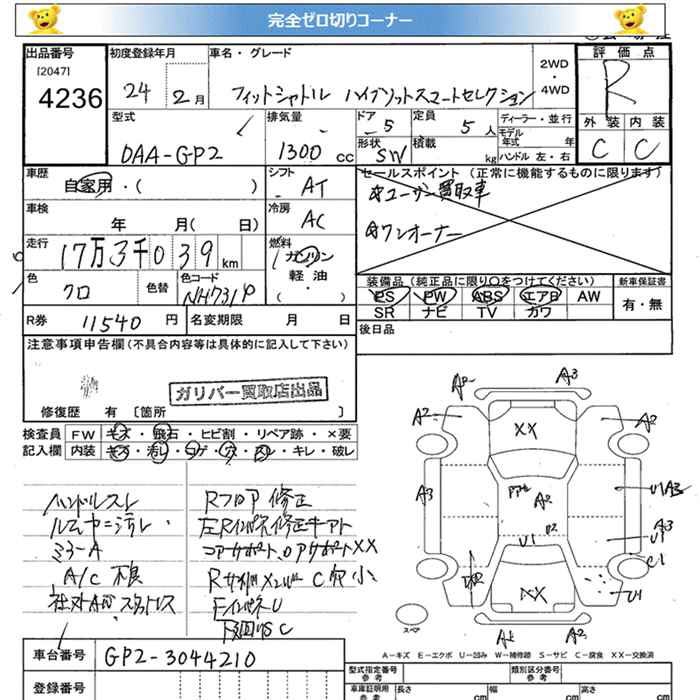 完全ゼロ切りコーナー
出品番号
[2047]
4236
初度登録年月
24 2月
車名・グレード
フィットシャトル ハイブリットスマートセレクション
2WD
・
4WD
評価点
R
型式
DAA-GP2
排気量
1300 cc
ドア
5
定員
5人
形状
SW
積載
kg
ディーラー・並行
モデル
年式 年
ハンドル 左・右
外装 内装
C C
車歴
自家用・( )
シフト
AT
セールスポイント(正常に機能するものに限ります)
☆ユーザー買取車
☆ワンオーナー
車検
年 月( 日)
冷房
AC
走行
17万3千039km
燃料
ガソリン
軽油
・
( )
色
クロ
色替
色コード
NH731P
装備品(純正品に限り○をつけてください)
PS PW ABS エアB AW
SR ナビ TV カワ
新車保証書
有・無
R券 11540円
名変期限 月 日
後日品
注意事項申告欄(不具合内容等は具体的に記入して下さい)
ガリバー買取店出品
修復歴 有 [箇所 ]
検査員 FW キズ・飛石・ヒビ割・リペア跡・×要
記入欄 内装 キズ・汚レ・コゲ・穴・スレ・キレ・破レ
ハンドルスレ
ミラーA
A/C 不良
Rフロア 修正
左Rインパネ修正キアト
コアサポート、ロアサポートXX
FインパネU
下回りSC
A2 A3
A2 A2
XX
A3 A2 U1 A3
U1 A3
U1 C1
XX U1
A2
スペア
A-キズ E-エクボ U-凹み W-補修跡 S-サビ C-腐食 XX-交換済
車台番号 GP2-3044210
型式指定番号
参考
類別区分番号
参考
登録番号
車庫証明用
参考
長さ cm
幅 cm
高さ cm